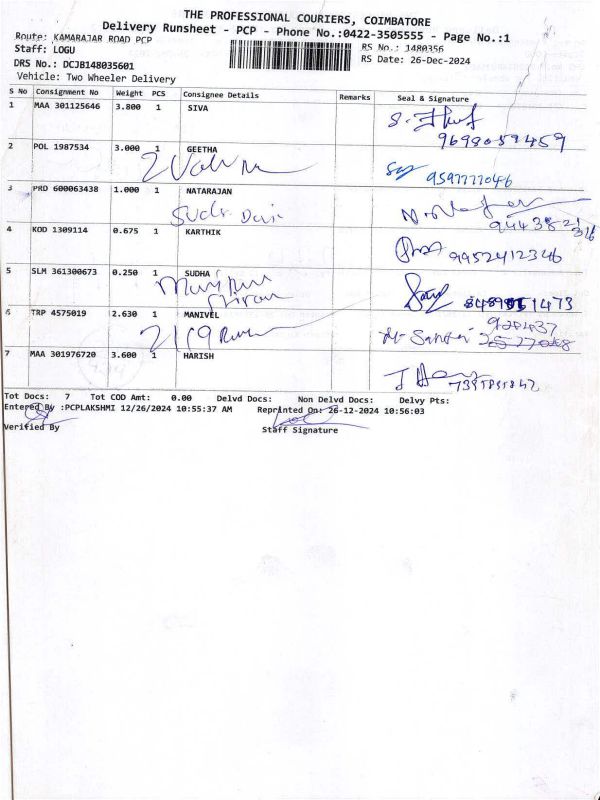 THE PROFESSIONAL COURIERS, COIMBATORE
Delivery Runsheet - PCP - Phone No.:0422-3505555 - Page No.:1
Route: KAMARAJAR ROAD PCP
RS No.: 1480356
Staff: LOGU
RS Date: 26-Dec-2024
DRS No.: DCJB148035601
Vehicle: Two Wheeler Delivery
S No Consignment No Weight PCS Consignee Details Remarks Seal & Signature
1 MAA 301125646 3.800 1 SIVA
9698059459
2 POL 1987534 3.000 1 GEETHA
9597777046
3 PRD 600063438 1.000 1 NATARAJAN
4 KOD 1309114 0.675 1 KARTHIK
9952412346
5 SLM 361300673 0.250 1 SUDHA
6 TRP 4575019 2.630 1 MANIVEL
7 MAA 301976720 3.600 1 HARISH
Tot Docs: 7 Tot COD Amt: 0.00 Delvd Docs: Non Delvd Docs: Delvy Pts:
Entered By :PCPLAKSHMI 12/26/2024 10:55:37 AM Reprinted On: 26-12-2024 10:56:03
Verified By Staff Signature